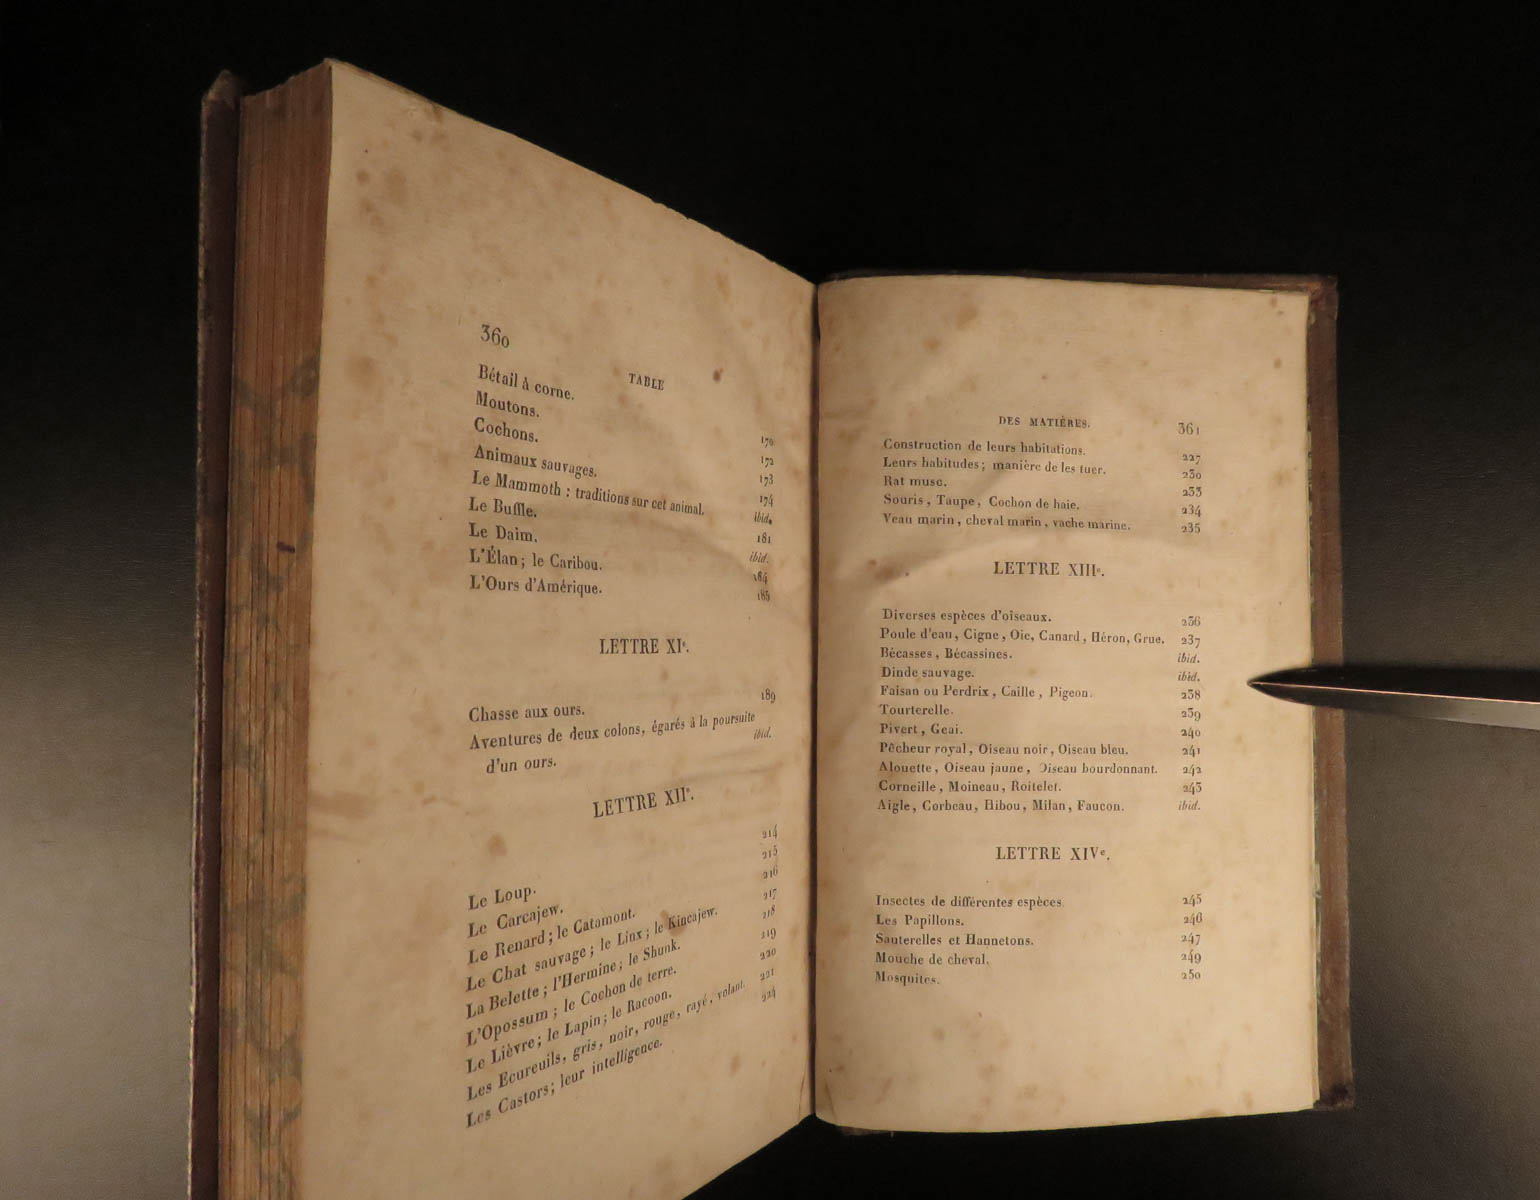 360
TABLE
Bétail à corne. 170
Moutons. 172
Cochons. 173
Animaux sauvages. 174
Le Mammoth : traditions sur cet animal. ibid.
Le Buffle. 181
Le Daim. ibid.
L'Élan ; le Caribou. 184
L'Ours d'Amérique. 185
LETTRE XIe.
Chasse aux ours. 189
Aventures de deux colons, égarés à la poursuite
d'un ours. ibid.
LETTRE XIIe.
Le Loup. 214
Le Carcajew. 215
Le Renard ; le Catamont. 216
Le Chat sauvage ; le Linx ; le Kincajew. 217
La Belette ; l'Hermine ; le Shunk. 218
L'Opossum ; le Cochon de terre. 219
Le Lièvre ; le Lapin ; le Racoon. 220
Les Ecureuils, gris, noir, rouge, rayé, volant. 221
Les Castors ; leur intelligence. 224
DES MATIÈRES. 361
Construction de leurs habitations. 227
Leurs habitudes ; manière de les tuer. 230
Rat musc. 233
Souris, Taupe, Cochon de haie. 234
Veau marin, cheval marin, vache marine. 235
LETTRE XIIIe.
Diverses espèces d'oiseaux. 236
Poule d'eau, Cigne, Oie, Canard, Héron, Grue. 237
Bécasses, Bécassines. ibid.
Dinde sauvage. ibid.
Faisan ou Perdrix, Caille, Pigeon. 238
Tourterelle. 239
Pivert, Geai. 240
Pêcheur royal, Oiseau noir, Oiseau bleu. 241
Alouette, Oiseau jaune, Oiseau bourdonnant. 242
Corneille, Moineau, Roitelet. 243
Aigle, Corbeau, Hibou, Milan, Faucon. ibid.
LETTRE XIVe.
Insectes de différentes espèces. 245
Les Papillons. 246
Sauterelles et Hannetons. 247
Mouche de cheval. 249
Mosquites. 250